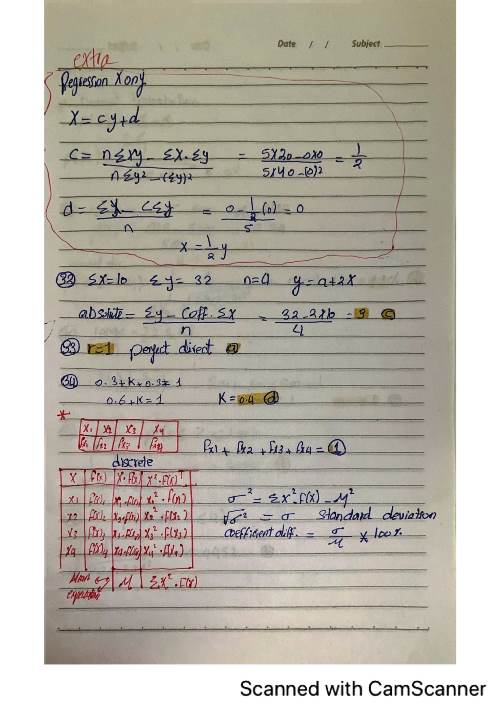 Date / / Subject
extra
Regression X on y
X = cy + d
C = nΣxy - Σx.Σy / nΣy² - (Σy)² = 5x20 - 0x0 / 5x40 - (0)² = 1/2
d = Σx - CΣy / n = 0 - 1/2 (0) / 5 = 0
x = 1/2 y
32 Σx=10 Σy= 32 n=4 y= a+2x
absolute = Σy - Coff. Σx / n = 32-2x10 / 4 = 3 c
33 r=1 perfect direct a
34 0.3+K+0.3=1
0.6+K=1 K=0.4 d
*
x1 x2 x3 x4
fx1 fx2 fx3 fx4
fx1 + fx2 + fx3 + fx4 = 1
discrete
X f(x) x.f(x) x².f(x)
x1 f(x)1 x1.f(x1) x1².f(x1)
x2 f(x)2 x2.f(x2) x2².f(x2)
x3 f(x)3 x3.f(x3) x3².f(x3)
x4 f(x)4 x4.f(x4) x4².f(x4)
Mean expectation M Σx².f(x)
σ² = Σx² f(x) - M²
√σ² = σ standard deviation
coefficient diff. = σ/M x 100%
Scanned with CamScanner